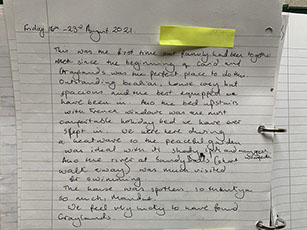 Friday 16th - 23rd August 2021
This was the first time our family had been together
since the beginning of Covid and
Graylands was the perfect place to do this.
Outstanding location, house cosy but
spacious and the best equipped we
have been in. Also the bed upstairs
with French windows was the most
comfortable holiday bed we have ever
slept in. We were here during
a heatwave so the peaceful garden
was ideal with its shady spots and
Also the river at Sandy Balls (short
walk away) was much visited
for swimming.
The house was spotless so thankyou
so much, Mandy.
We feel very lucky to have found
Graylands.